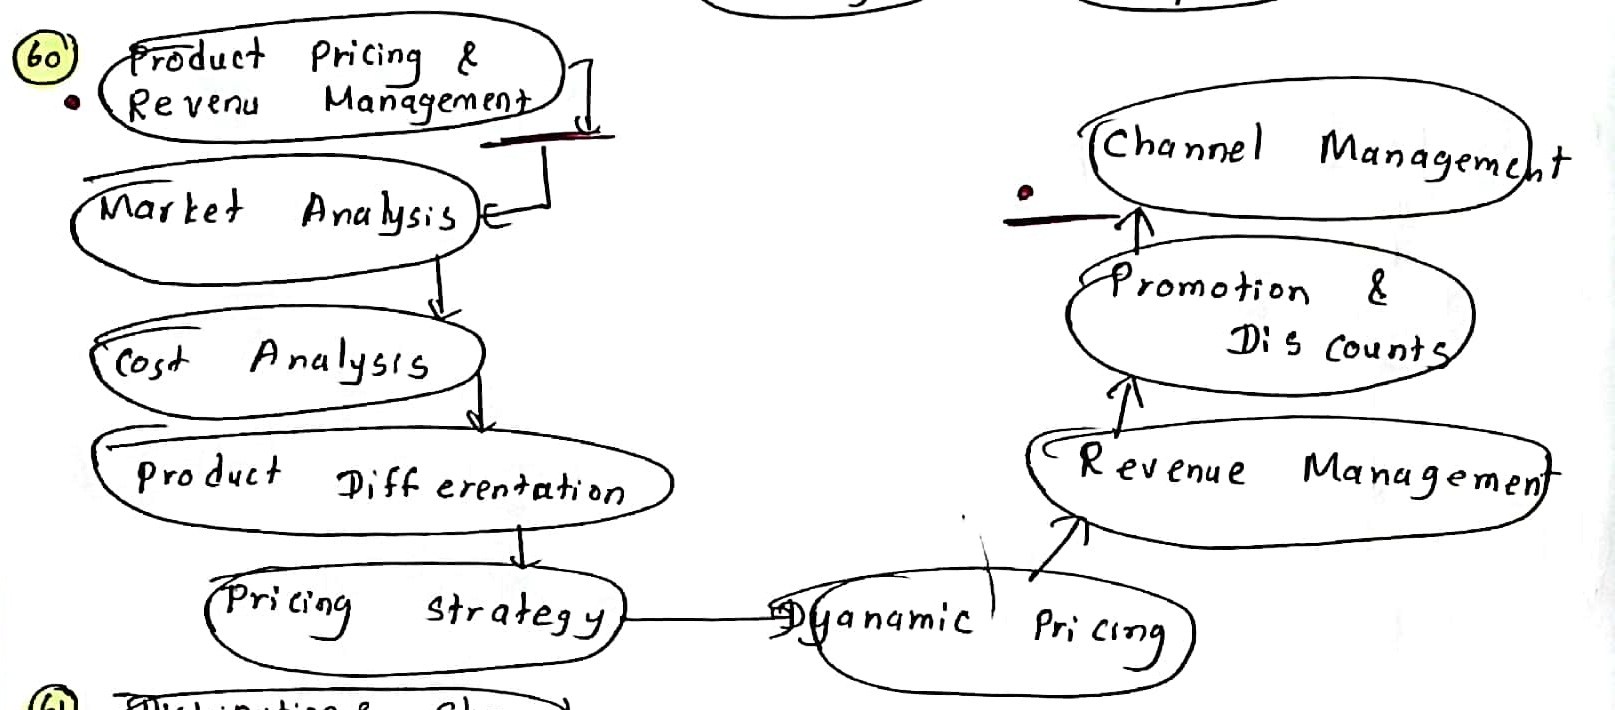 60
Product Pricing &
Revenu Management
Market Analysis
Cost Analysis
Product Differentation
Pricing strategy
Dyanamic Pricing
Revenue Management
Promotion &
Discounts
Channel Management
61